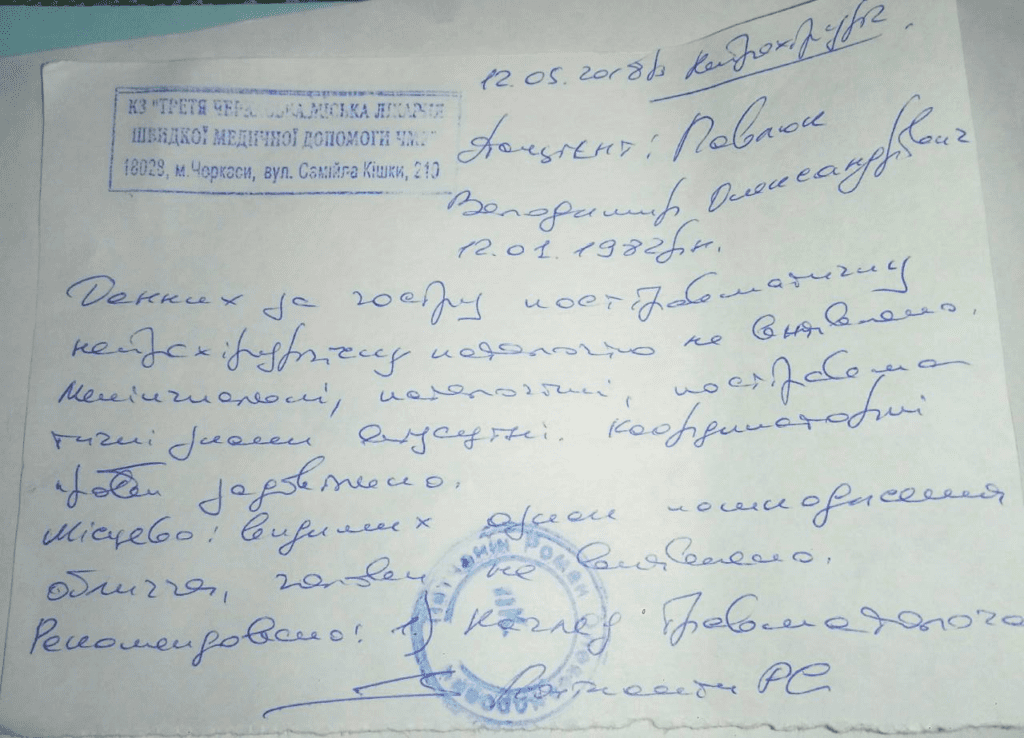 КЗ "ТРЕТЯ ЧЕРКАСЬКА МІСЬКА ЛІКАРНЯ
ШВИДКОЇ МЕДИЧНОЇ ДОПОМОГИ ЧМР"
18028, м.Черкаси, вул. Самійла Кішки, 210
12.05.2018р Нейрохірург.
Пацієнт: Павлюк
Володимир Олександрович
12.01.1982р.н.
Данних за гостру посттравматичну
нейрохірургічну патологію не виявлено.
Менінгиальні, патологічні, посттравма
тичні знаки відсутні. Координаторні
проби задовільно.
Місцево: видимих ознак пошкодження
обличчя, голови не виявлено.
Рекомендовано: 1) Нагляд травматолога
РС
Роман